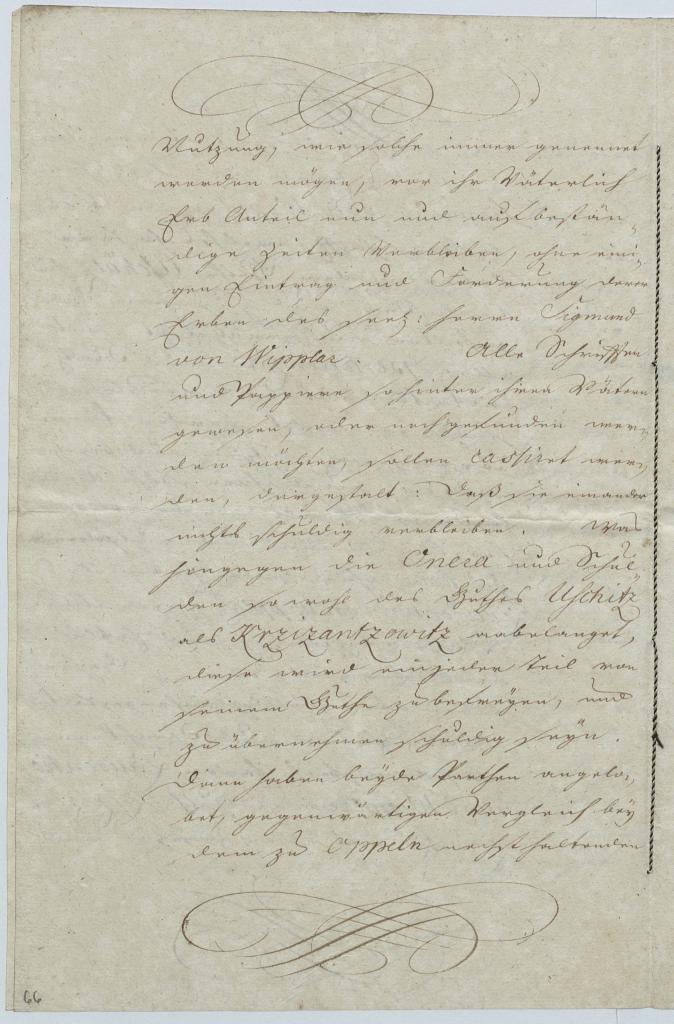 Nutzung, wie solche immer genennet
werden mögen, vor ihr Väterlich
Erb Anteil nun und auf bestän„
dige Zeiten Verbleiben, ohne eini„
gen Eintrag und Forderung derer
Erben des seel: Herrn Sigmund
von Wipplar. Alle Schrifften
und Pappiere so hinter ihren Vätern
gewesen, oder noch gefunden wer„
den möchten, sollen cassiret wer„
den, dergestalt: daß sie einander
nichts schuldig verbleiben. Was
hingegen die Onera und Schul„
den sowohl des Guthes Uschitz
als Krzizantzowitz anbelanget,
diese wird ein jeder Teil von
seinem Guthe zu befreyen, und
zu übernehmen schuldig seyn.
Dann haben beyde Parthen angelo„
bet, gegenwärtigen Vergleich bey
dem zu Oppeln nechst haltenden
66